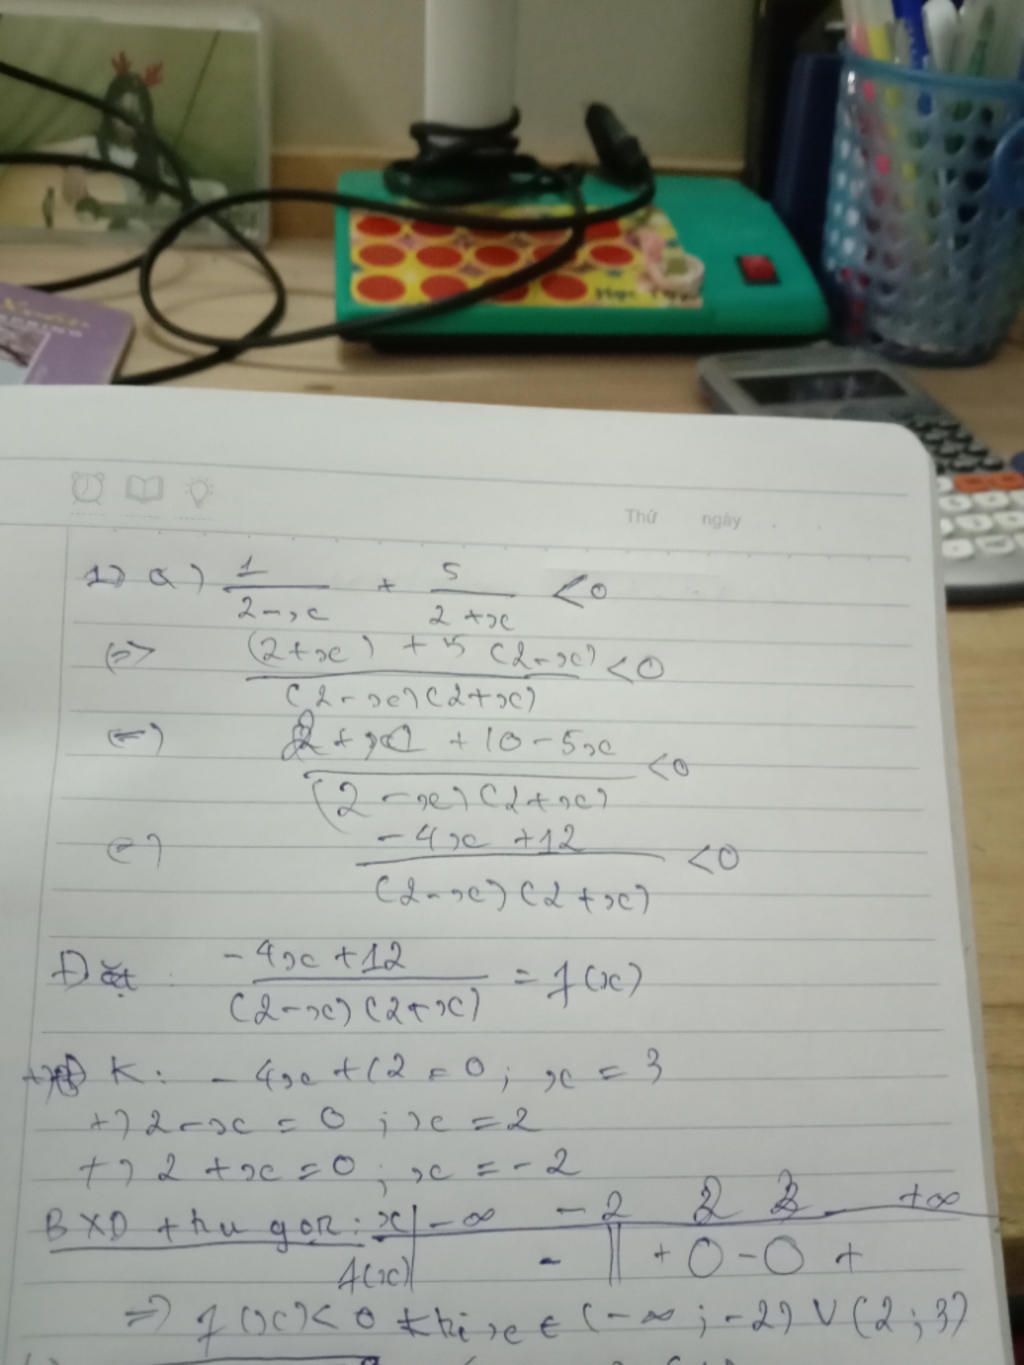 Thứ ngày
1) a) 1/(2-x) + 5/(2+x) <0
<=> ((2+x) + 5(2-x))/((2-x)(2+x)) <0
<=> (2+x + 10-5x)/((2-x)(2+x)) <0
<=> (-4x+12)/((2-x)(2+x)) <0
Đặt: (-4x+12)/((2-x)(2+x)) = f(x)
ĐK: -4x+12=0; x=3
+) 2-x=0; x=2
+) 2+x=0; x=-2
BXD thu gọn: x | -∞ -2 2 3 +∞
f(x) | - || + 0 - 0 +
=> f(x)<0 khi x ∈ (-∞; -2) ∪ (2; 3)